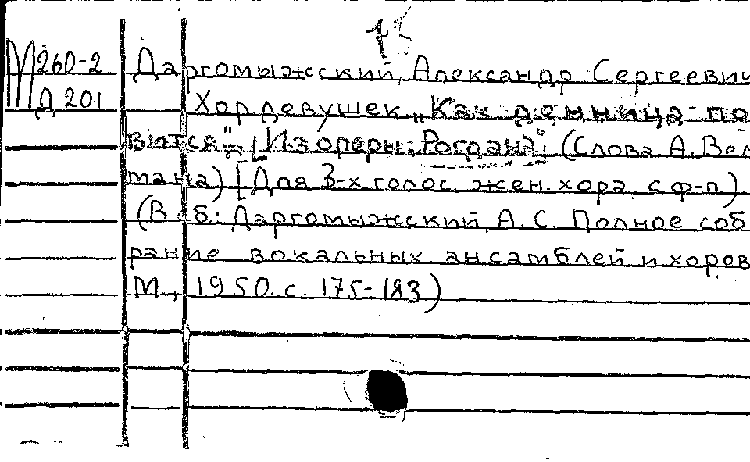 М260-2 Даргомыжский, Александр Сергеевич
Д 201 Хор девушек „Как денница по
вится". [Из оперы „Рогдана". (Слова А. Вел
тмана) [Для 3-х голос. жен. хора с ф-п.)
(В сб.: Даргомыжский А.С. Полное соб
рание вокальных ансамблей и хоров
М., 1950. с. 175-183)